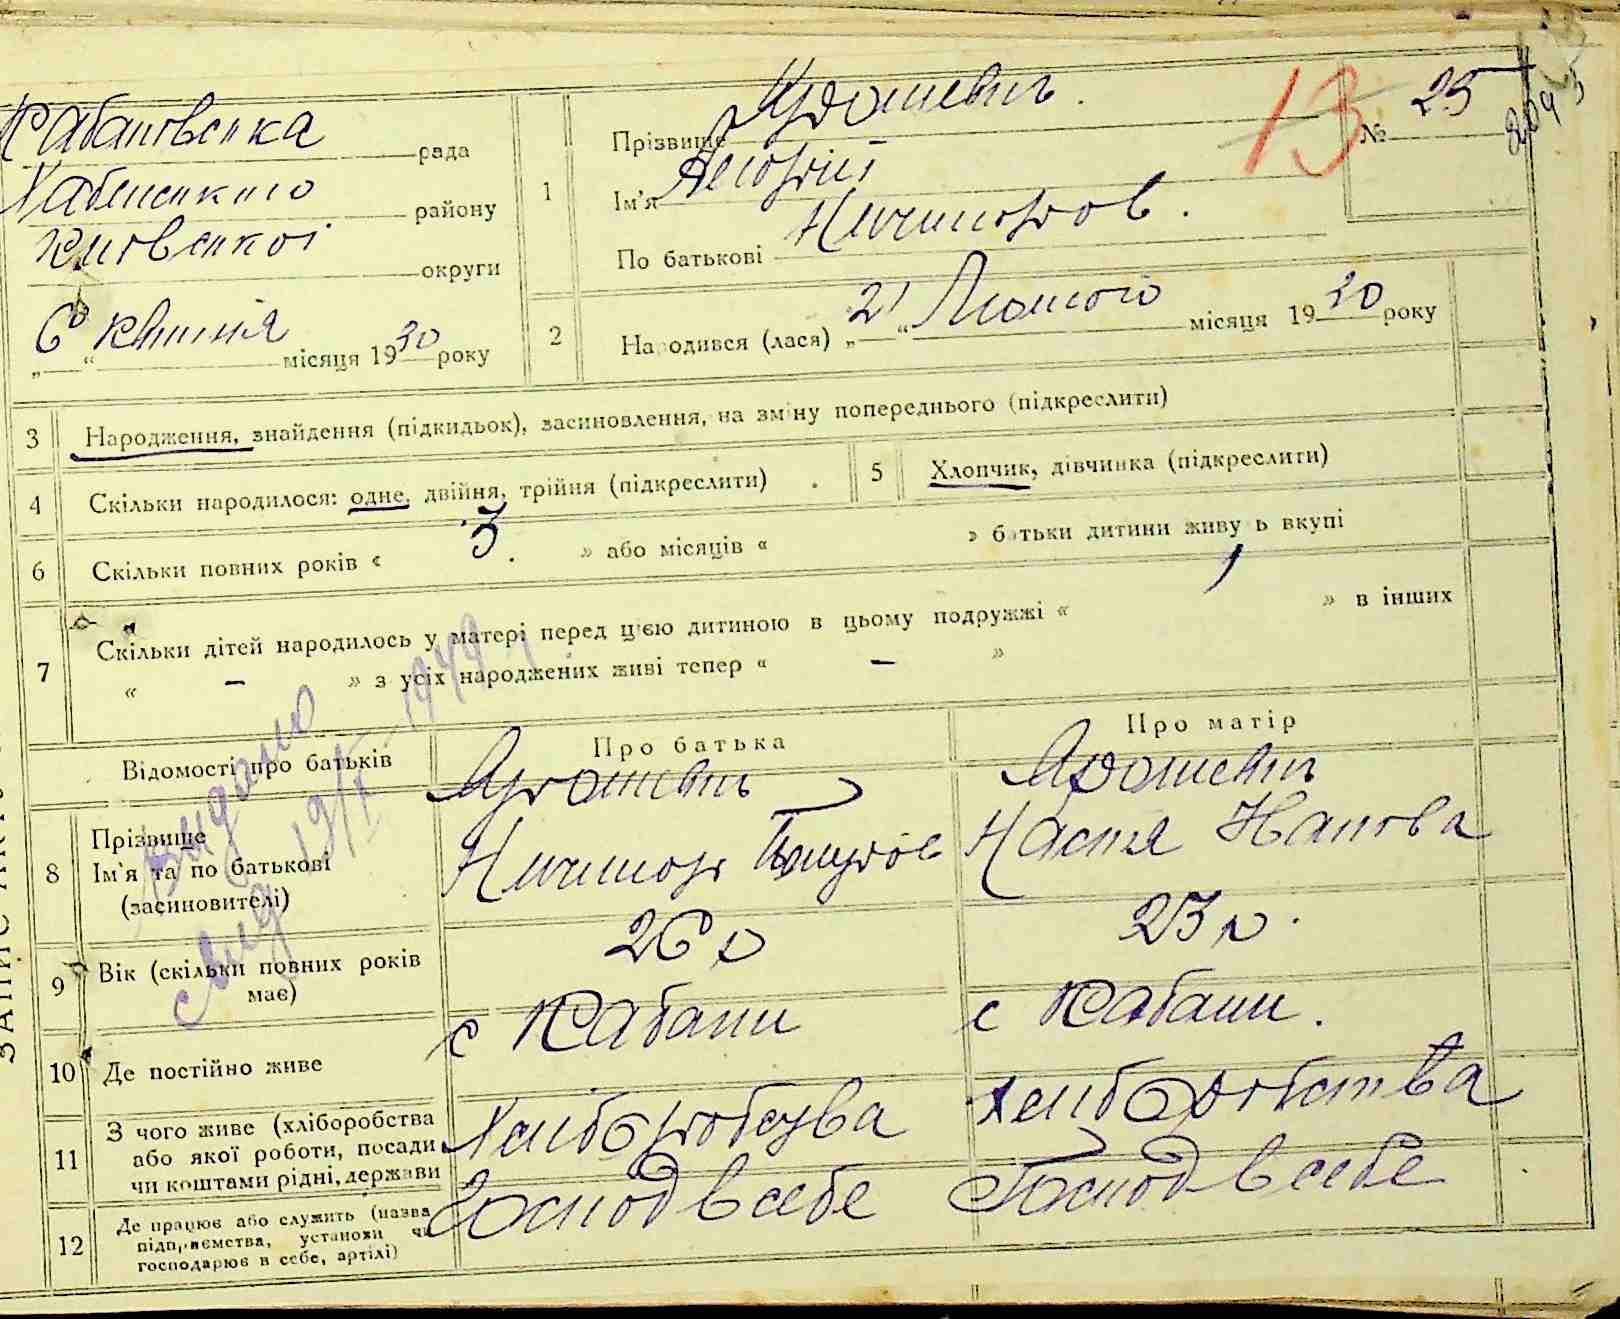 Кабанівська рада
Хабенського району
Київської округи
„6“ квітня місяця 1930 року
1
Прізвище Ярошевич.
Ім'я Георгій
По батькові Ничипоров.
13
№ 25
2
Народився (лася) „21“ Лютого місяця 1930 року
3 Народження, знайдення (підкидьок), засиновлення, на зміну попереднього (підкреслити)
4 Скільки народилося: одне, двійня, трійня (підкреслити).
5 Хлопчик, дівчинка (підкреслити)
6 Скільки повних років « 3. » або місяців « » батьки дитини живу ь вкупі
7 Скільки дітей народилось у матері перед цією дитиною в цьому подружжі « 1 » в інших
« – » з усіх народжених живі тепер « – »
Відомості про батьків
Про батька
Про матір
8 Прізвище
Ім'я та по батькові
(засиновителі)
Ярошевич
Ничипор
Ярошевич
Настя
9 Вік (скільки повних років
має)
26 р
23 р.
10 Де постійно живе
с Кабани
с Кабани.
11 З чого живе (хліборобства
або якої роботи, посади
чи коштами рідні, держави
Хліборобства
хліборобства
12 Де працює або служить (назва
підприємства, установи чи
господарює в себе, артілі)
Господ в себе
Господ в себе
Видано